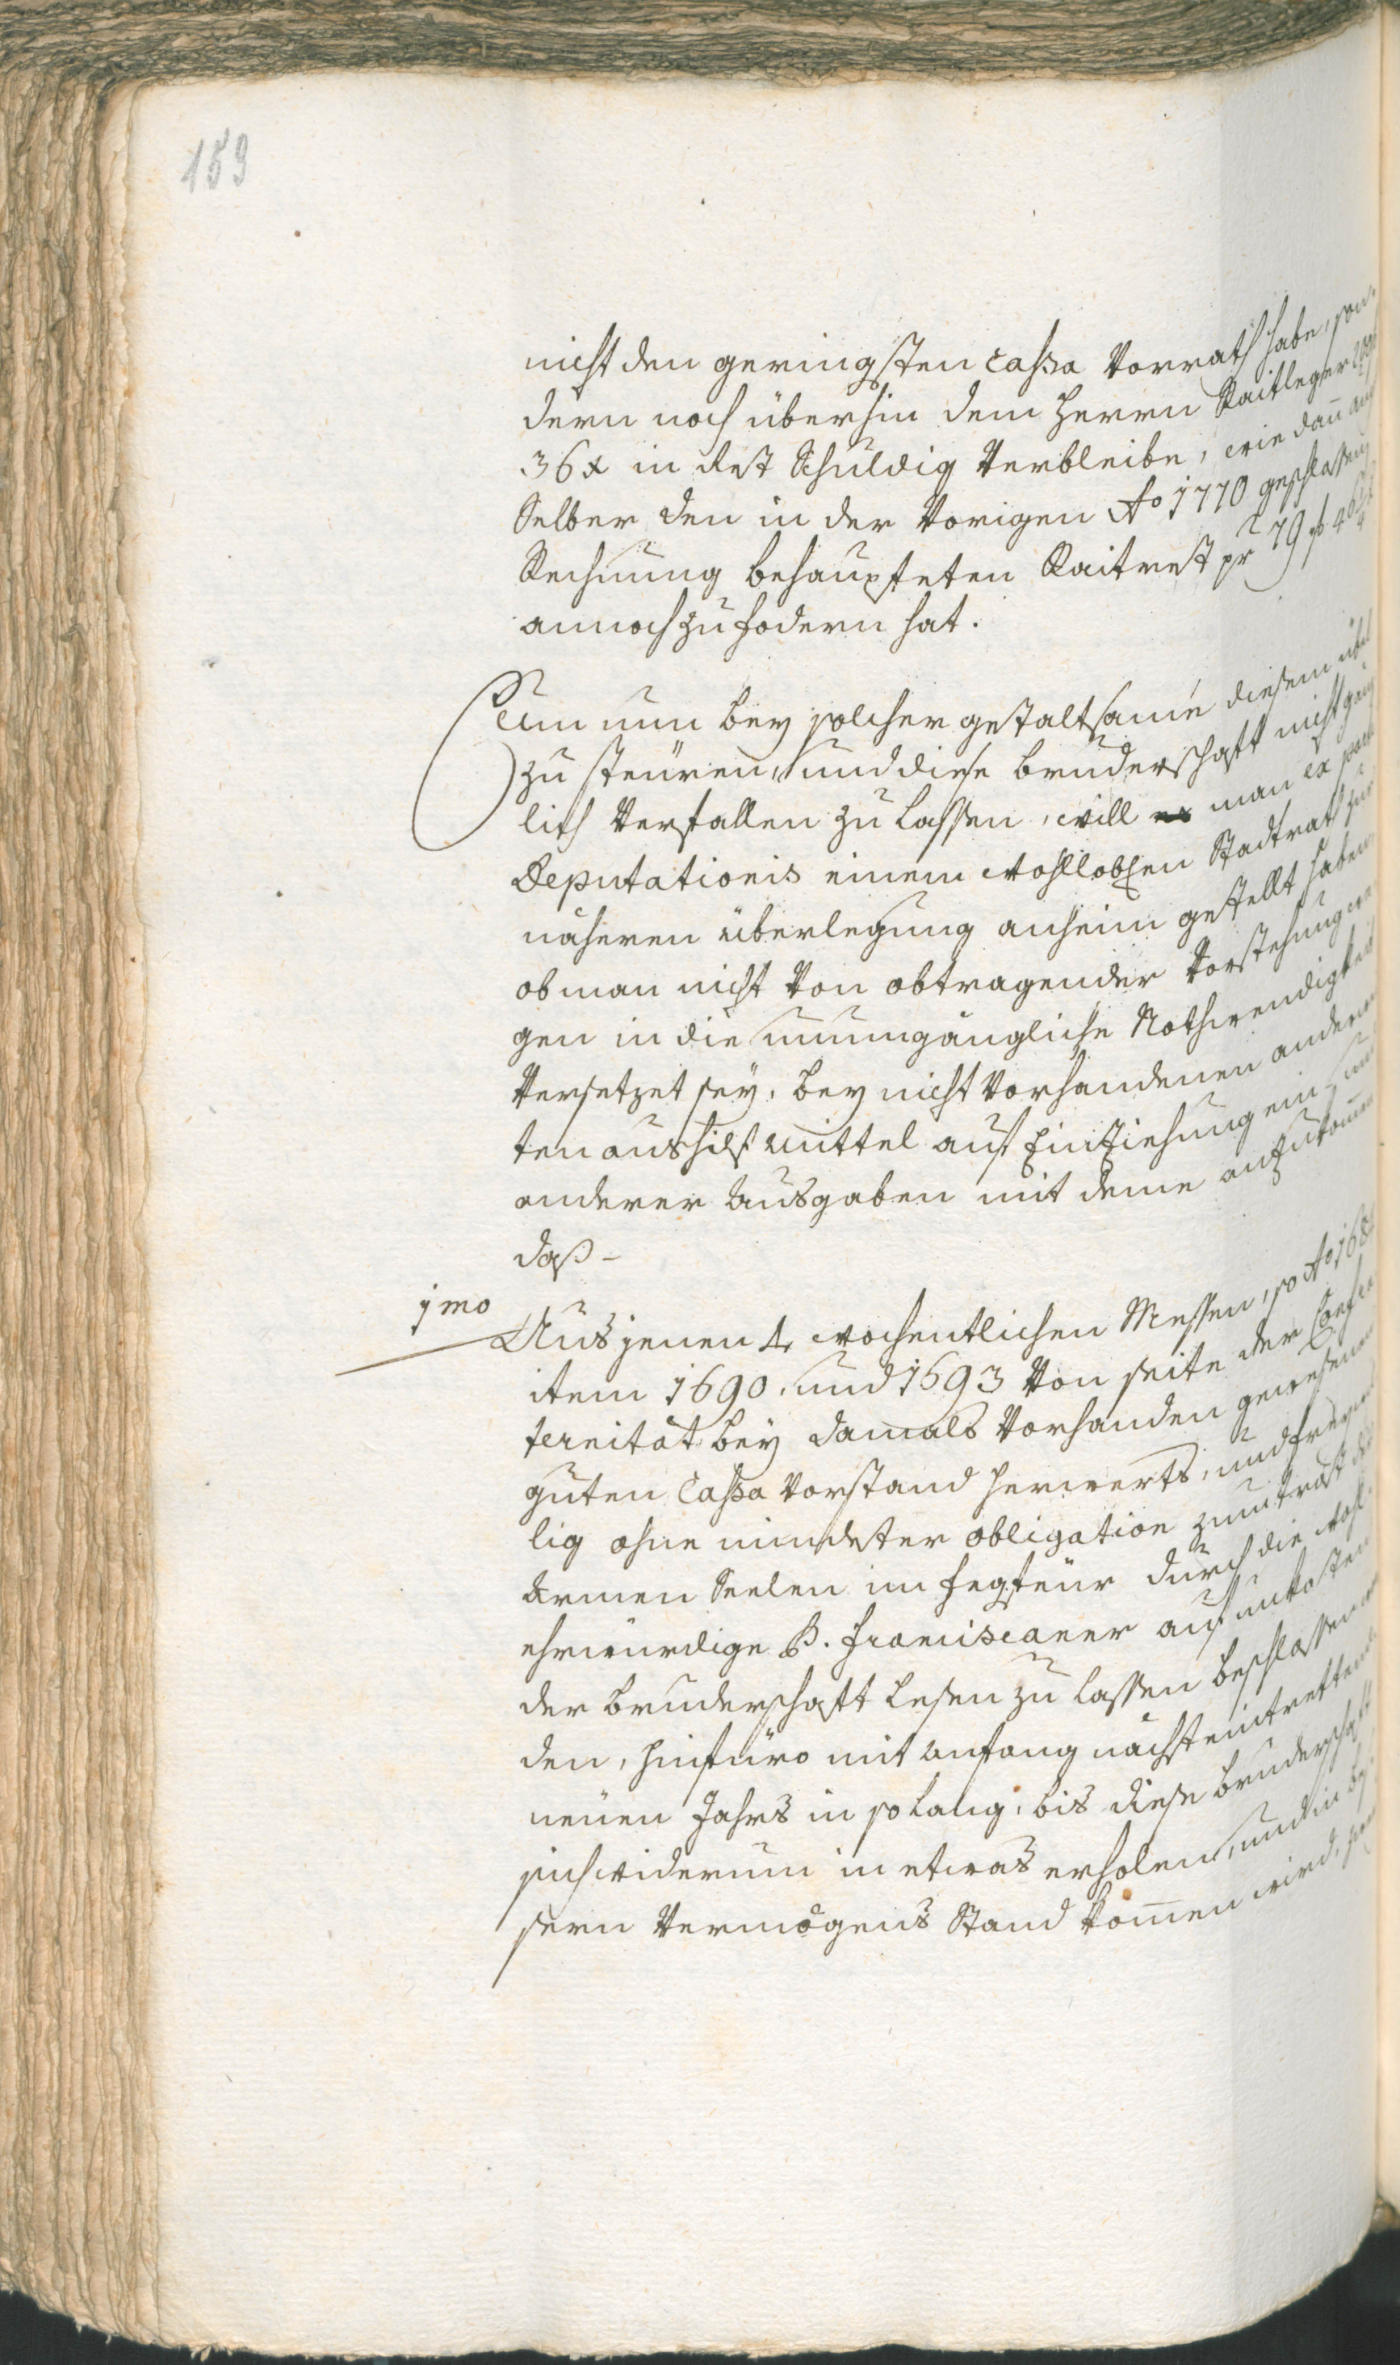 159
nicht den geringsten Cassa Vorrath habe, son-
dern noch überhin dem Herrn Raitleger
36 x in Rest Schuldig Verbleibe, wie dañ auch
Selber den in der Vorigen Ao 1770 geschlossenen
Rechnung behaupteten Raitrest pr 79 f 46
annoch zu fodern hat.
Um nun bey solcher gestaltsame diesem übel
zu steüren, und diese bruderschaft nicht gänz
lich Verfallen zu lassen, will man ex parte
Deputationis einem wohllobhen Stadtrath zur
näheren überlegung anheim gestellt haben,
ob man nicht Von obtragender Vorstehung we-
gen in die unumgängliche Nothwendigkeit
Versetzet sey, bey nicht Vorhandenen anderen
ten aushilf mittel auf Einziehung ein, und
anderer Ausgaben mit deme anzukomen
daß -
1mo Aus jenen 4 wochentlichen Messen, so Ao 168
item 1690. und 1693 Von seite der Confra
ternität bey damals Vorhanden gewesenen
guten Cassa Vorstand herwerts, und freywil
lig ohne mindester obligation zum trost der
Armen Seelen im fegfeür durch die Wohl-
ehrwürdige P. Franciscaner auf unkosten
der bruderschaft lesen zu lassen beschlossen wor
den, hinfüro mit anfang nächst eintrettend
neüen Jahrs in so lang, bis diese bruderschaft
sich widerum in etwas erholen, und in bes-
sern Vermögens Stand komen wird,